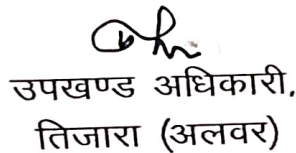 उपखण्ड अधिकारी.
तिजारा (अलवर)